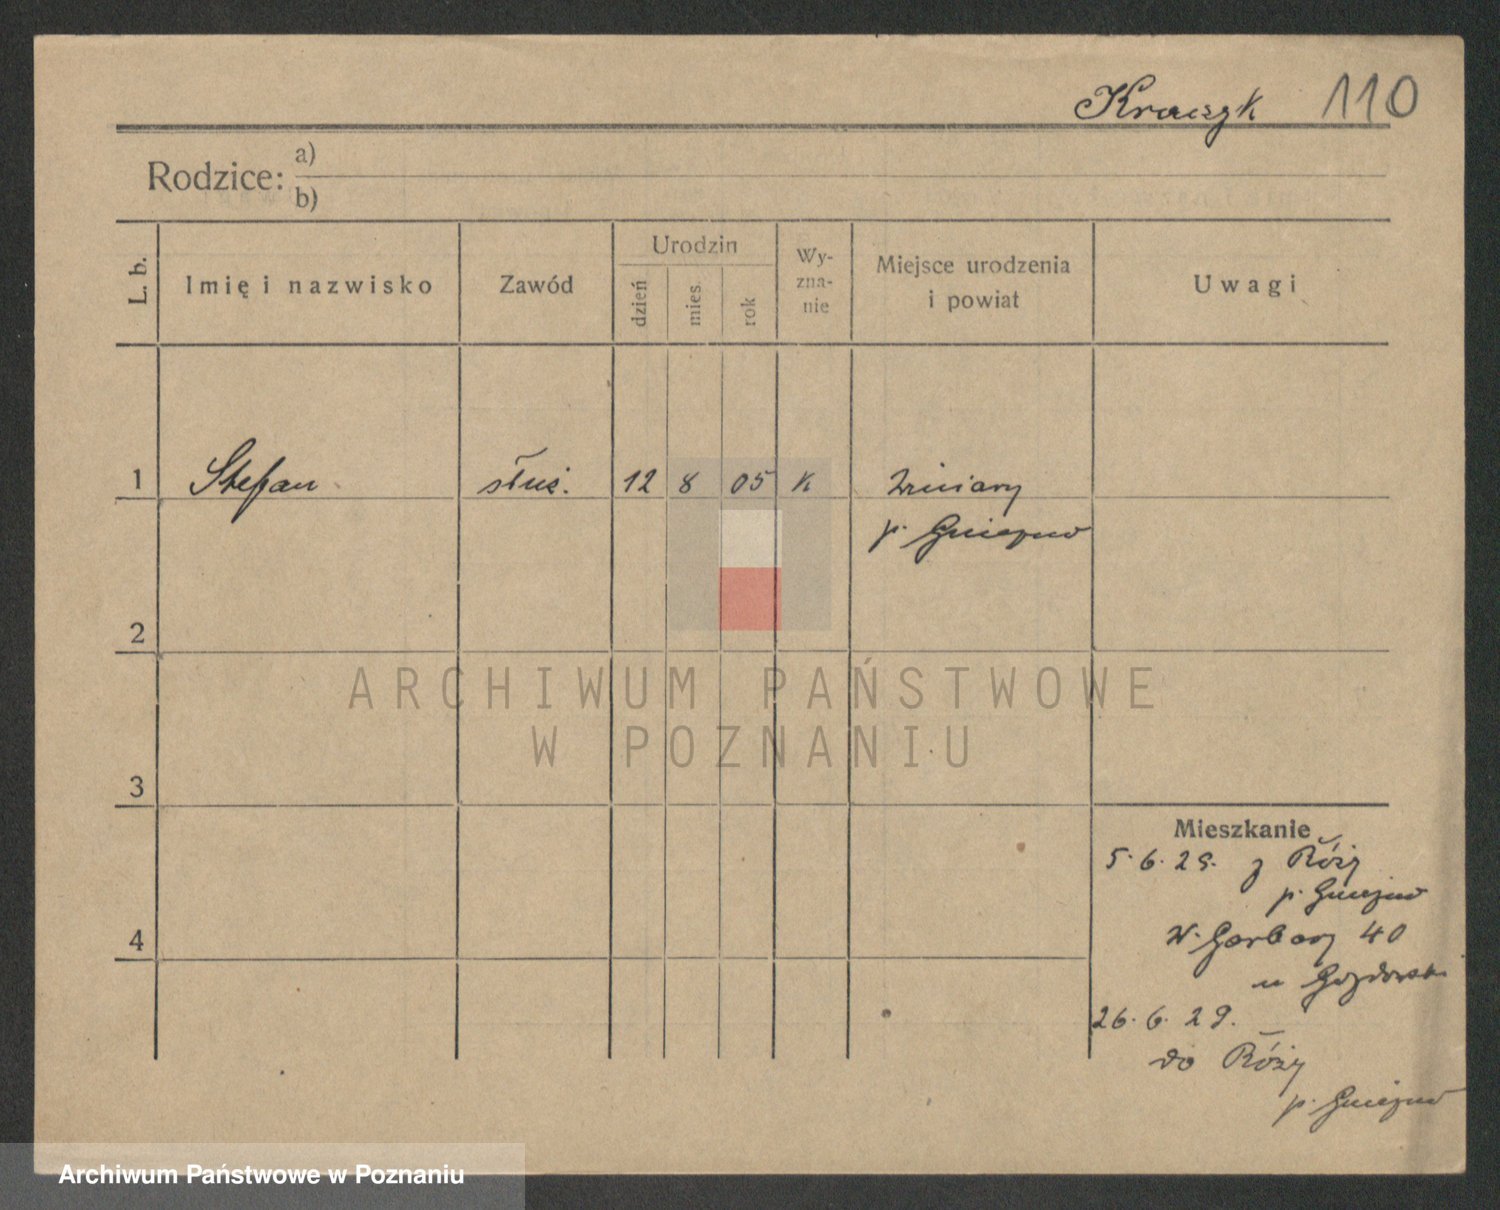 Kraczyk 110
Rodzice: a)
b)
L. b. Imię i nazwisko Zawód Urodzin dzień mies. rok Wy-zna-nie Miejsce urodzenia i powiat Uwagi
1 Stefan służ. 12 8 05 K
p. Gniezno
2
ARCHIWUM PAŃSTWOWE
W POZNANIU
3
Mieszkanie
5.6.29. z Róży
p. Gniezno
W. Garbary 40
4
26.6.29.
do Róży
p. Gniezno
Archiwum Państwowe w Poznaniu